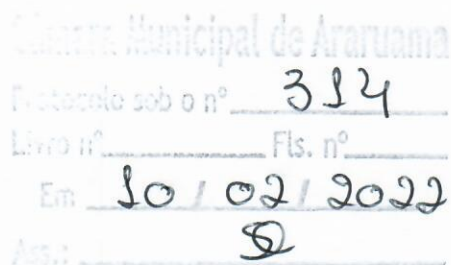 Câmara Municipal de Araruama
Protocolo sob o nº 314
Livro nº Fls. nº
Em 10 / 02 / 2022
Ass.: